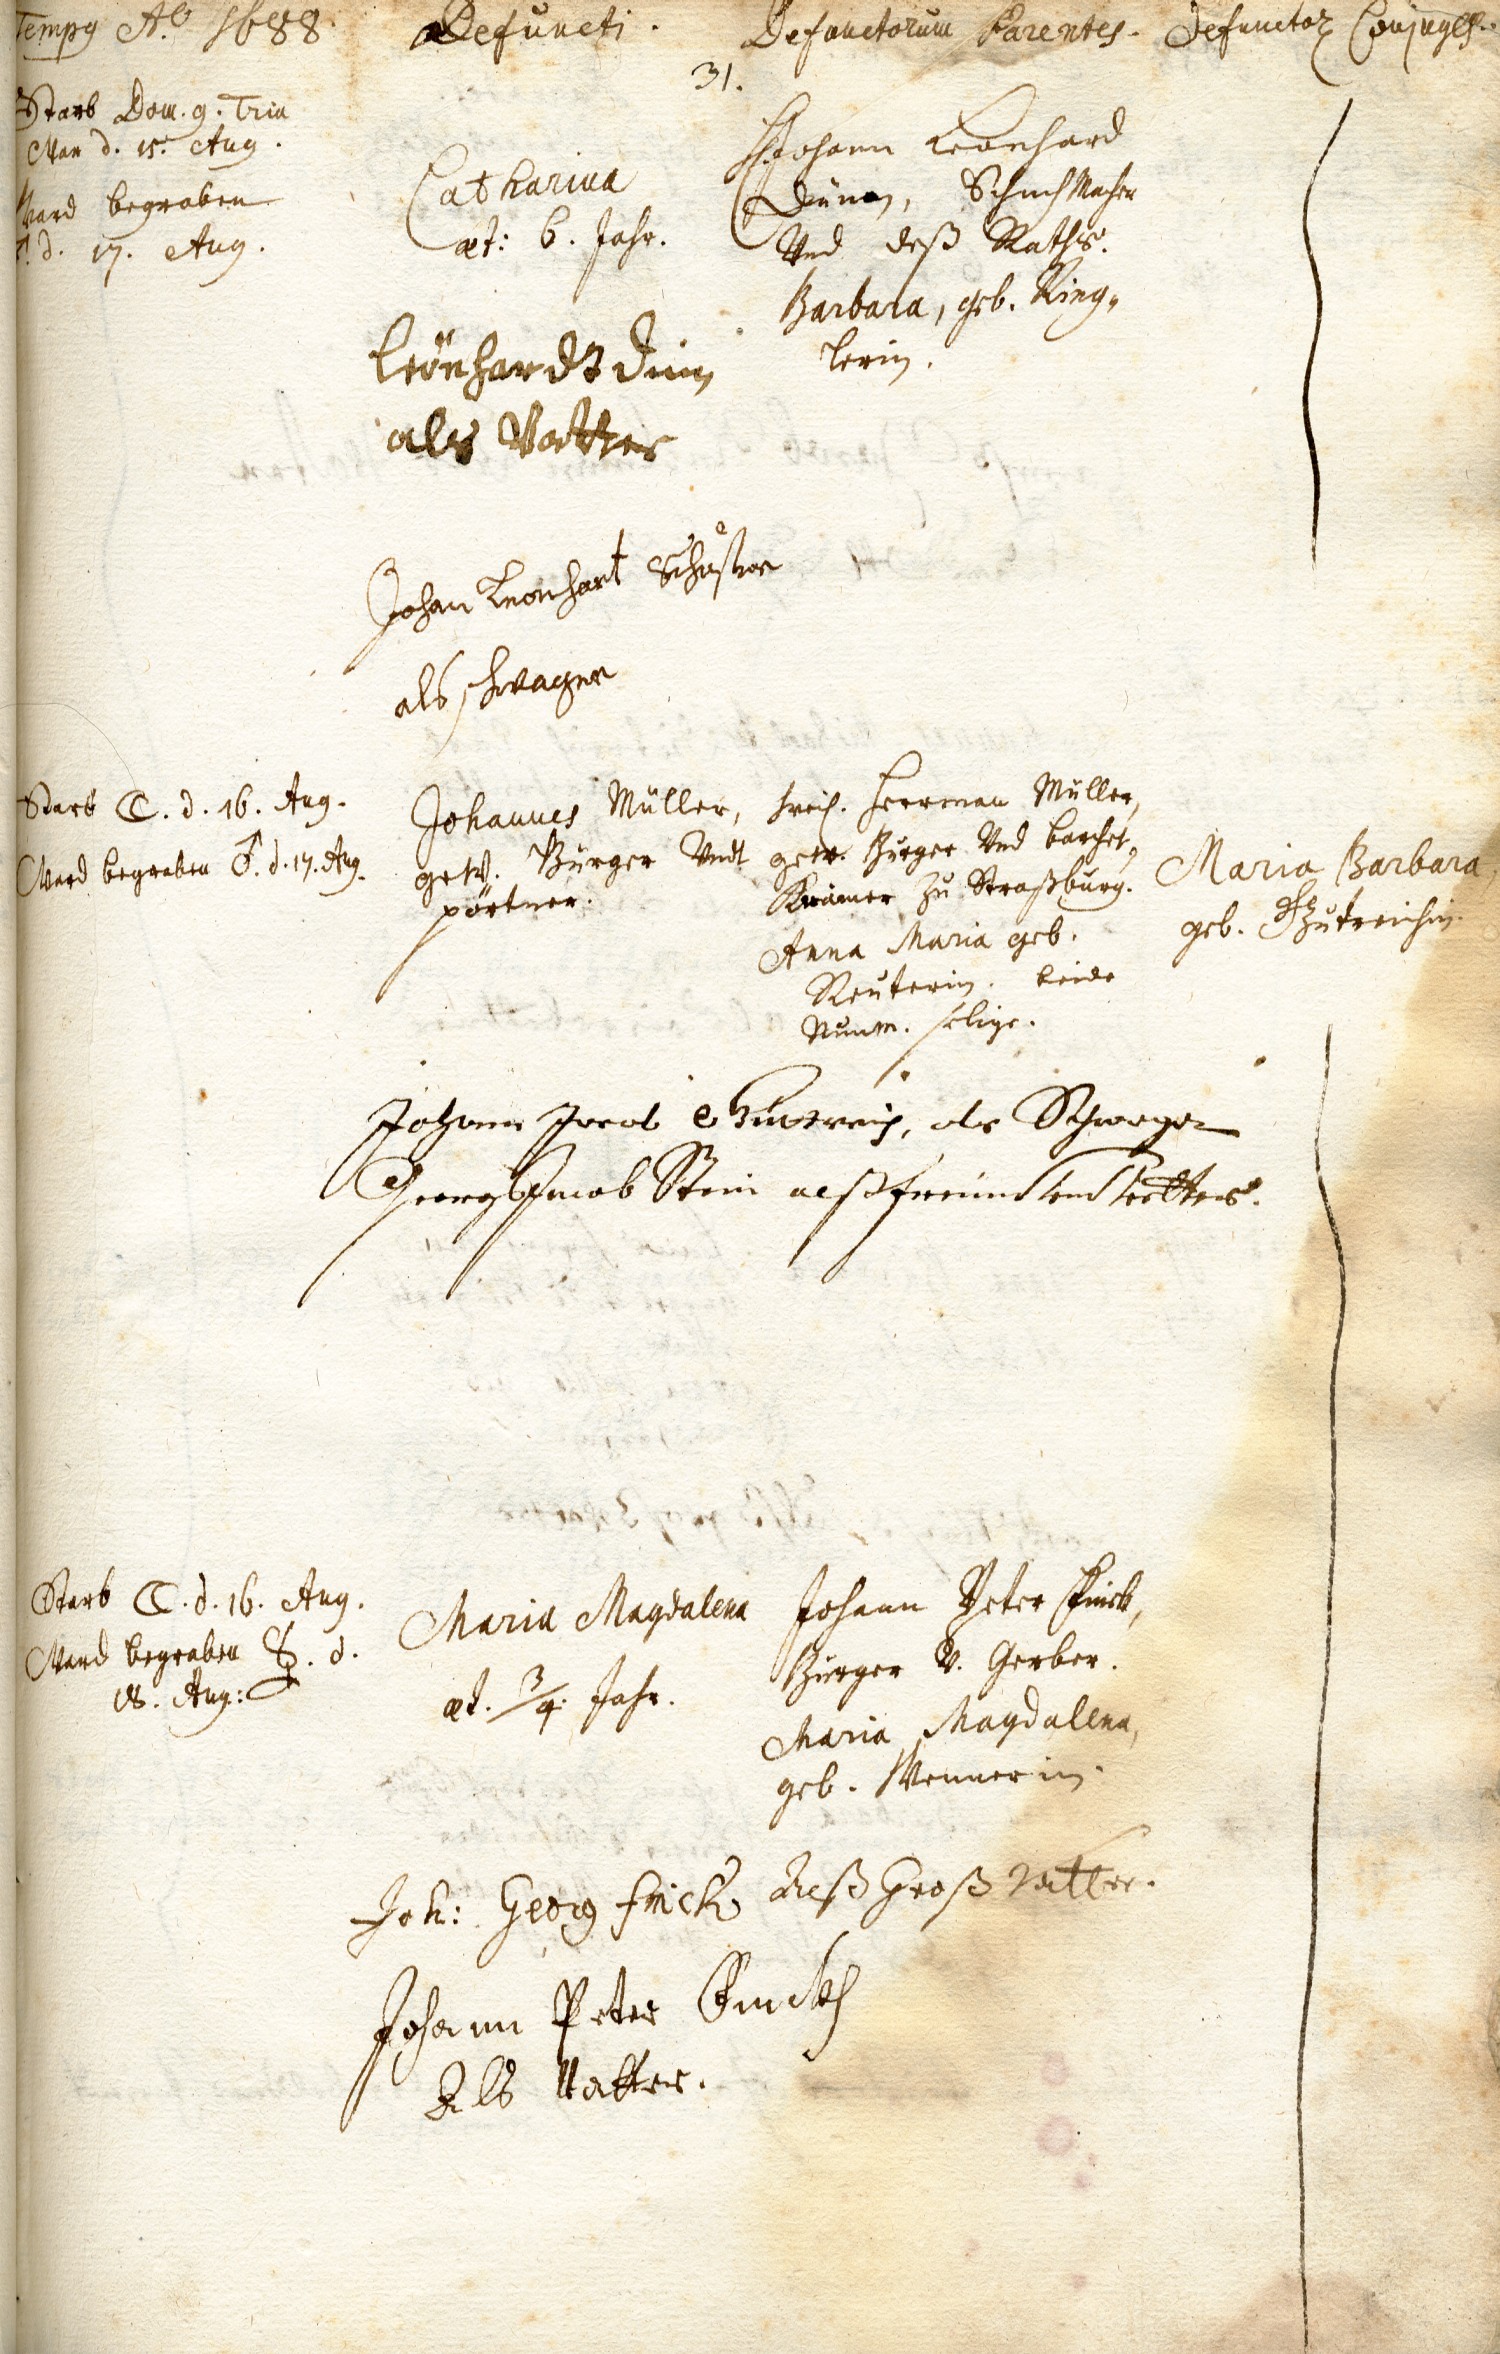 Tempg Aō 1688. Defuncti. Defunctorum Parentes. Defunctor Conjuges.
31.
Starb Dom. 9. Trin
Nan d. 15. Aug.
Ward begraben
♂. d. 17. Aug.
Catharina
æt: 6. Jahr.
H. Johann Leonhard
Dünn, Schuch Macher
Und deß Raths.
Barbara, geb. Ring-
lerin.
Leönhardt Dünn
als Vatter
Johan Leonhart Schuster
als schwager
Starb ☾. d. 16. Aug.
Ward begraben ♂. d. 17. Aug.
Johannes Müller,
gew. Bürger Undt
pörtner.
Herrman Müller,
gew. Burger Und barchet-
Kramer zu Straßburg.
Anna Maria geb.
Reuterin. beide
Nunm. selige.
Maria Barbara,
geb. Gutreichin.
Johann Jacob Guttreich, als Schwager
Georg Jacob Stein alß freund Vetter.
Starb ☾. d. 16. Aug.
Ward begraben ☿. d.
18. Aug:
Maria Magdalena
æt. 3/4. Jahr.
Johann Peter Frick,
Burger V. Gerber.
Maria Magdalena,
geb. Wennerin.
Joh: Georg Frick Alß Groß Vatter.
Johann Peter Frick
Als Vatter.